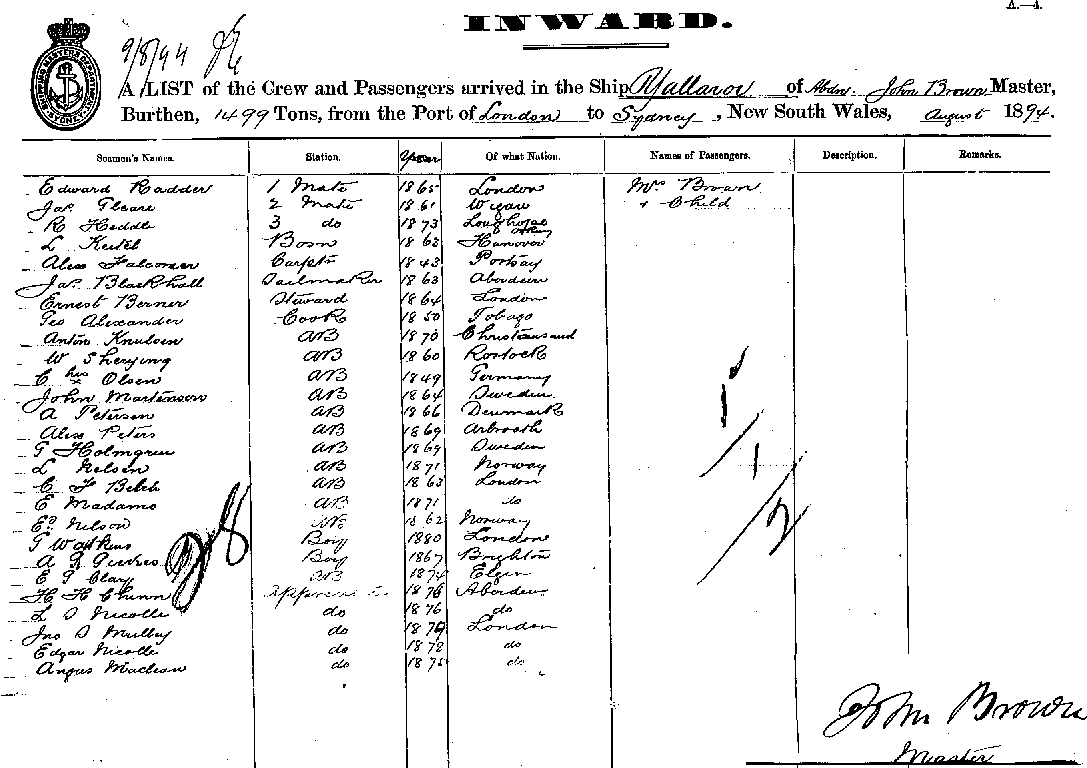 A.—4.
INWARD.
9/8/94
A LIST of the Crew and Passengers arrived in the Ship Yallaroi of Abdn. John Brown Master,
Burthen, 1499 Tons, from the Port of London to Sydney, New South Wales, August 1894.
Seamen's Names. Station. Of what Nation. Names of Passengers. Description. Remarks.
Edward Radder 1 Mate 1865 London Mrs Brown
Jas 2 Mate 1861 Wigan + Child
R Heddle 3 do 1873
L Bosn 1862 Hanover
Alex Falconer Carptr 1843 Portsoy
Jas Blackhall Sailmaker 1863 Aberdeen
Ernest Berner Steward 1864 London
Geo Alexander Cook 1850 Tobago
Anton Knulsen AB 1870
W AB 1860 Rostock
C his x Olsen AB 1849 Germany
John Martenson AB 1864 Sweden
A Petersen AB 1866 Denmark
Alex Peters AB 1869 Arbroath
G Holmgren AB 1869 Sweden
L Nelson AB 1871 Norway
C F AB 1863 London
E Madams AB 1871 do
Nelson 1862 Norway
G Watkins Boy 1880 London
A Boy 1867 Brighton
E G Clary AB 1874 Elgin
H H Chinn Apprentice 1876 Aberdeen
L D Nicolle do 1876 do
Jno D Mulley do 1876 London
Edgar Nicolle do 1878 do
Angus Maclean do do
John Brown
Master